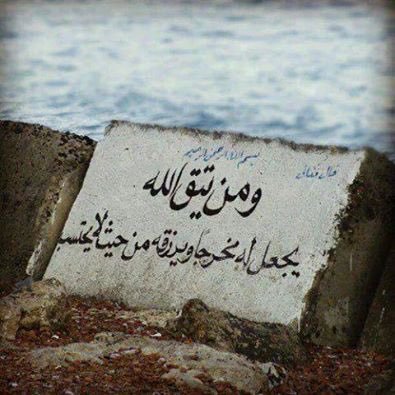 قال تعالى
بسم الله الرحمن الرحيم
ومن يتق الله
يجعل له مخرجا ويرزقه من حيث لا يحتسب